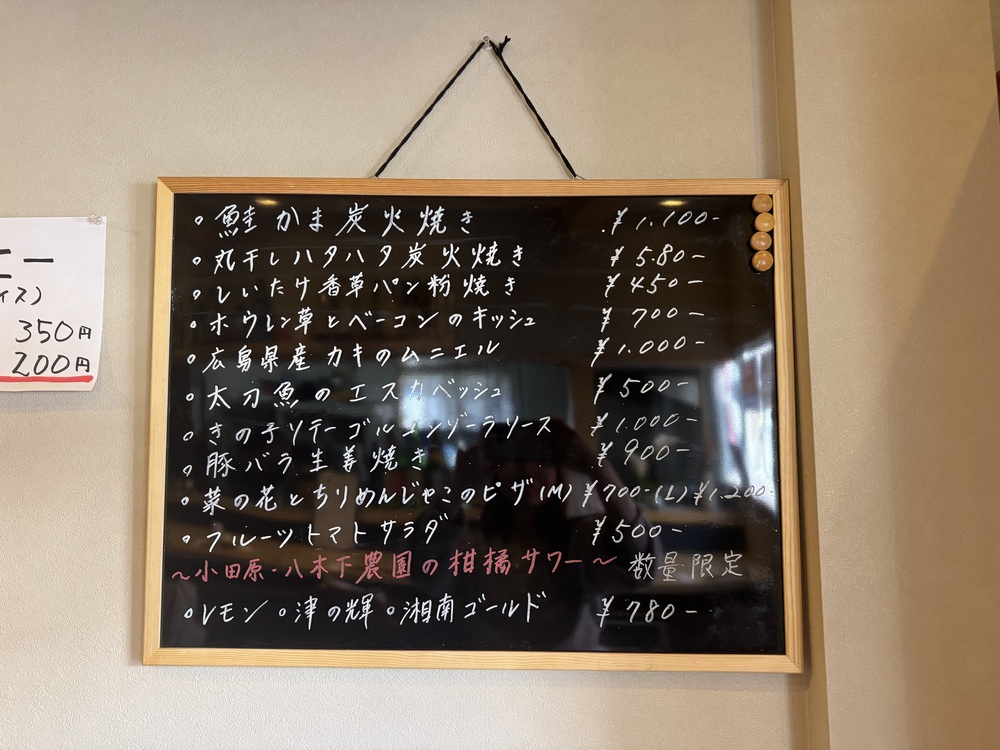 ニー
イス)
350円
200円
。鮭かま炭火焼き ¥1.100-
。丸干しハタハタ炭火焼き ¥580-
。しいたけ香草パン粉焼き ¥450-
。ホウレン草とベーコンのキッシュ ¥700-
。広島県産カキのムニエル ¥1.000-
。太刀魚のエスカベッシュ ¥500-
。きの子ソテーゴルゴンゾーラソース ¥1.000-
。豚バラ生姜焼き ¥900-
。菜の花とちりめんじゃこのピザ(M) ¥700-(L)¥1.200-
。フルーツトマトサラダ ¥500-
～小田原・八木下農園の柑橘サワー～ 数量限定
。レモン 。津の輝 。湘南ゴールド ¥780-